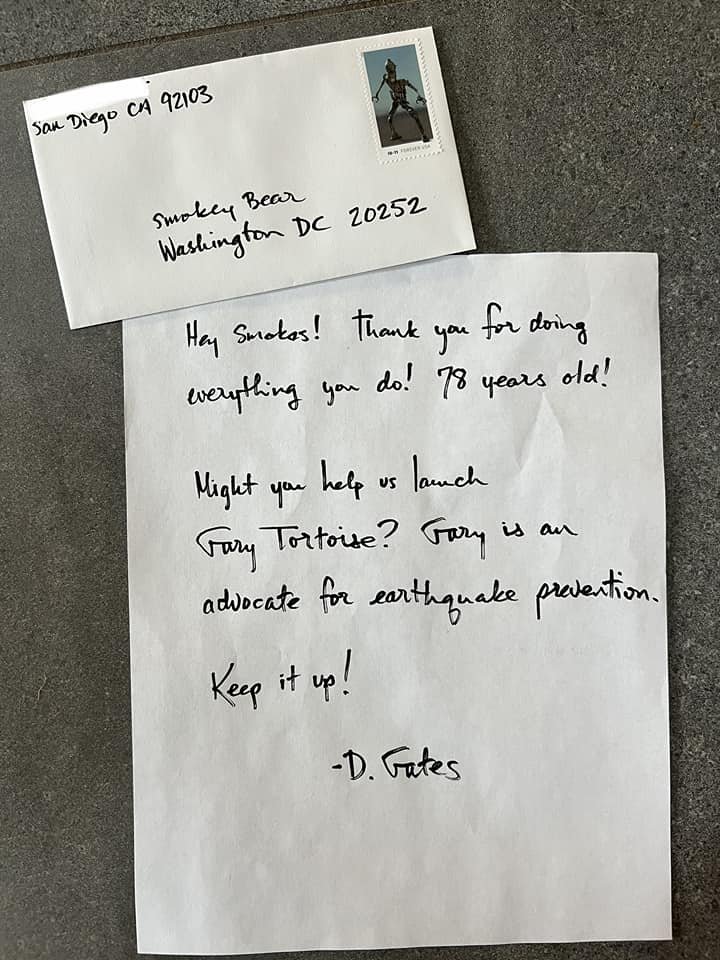 San Diego CA 92103
IG-11 FOREVER USA
Smokey Bear
Washington DC 20252
Hey Smokes! Thank you for doing
everything you do! 78 years old!
Might you help us launch
Gary Tortoise? Gary is an
advocate for earthquake prevention.
Keep it up!
-D. Gates